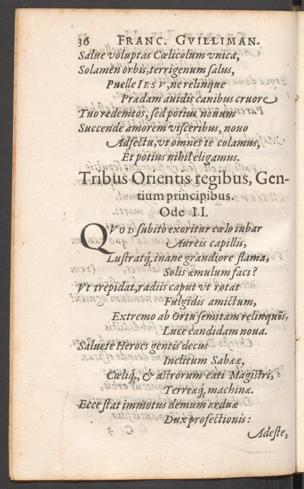 36 FRANC. GVILLIMAN.
Salue voluptas Cœlicolum vnica,
Solamen orbis, terrigenum salus,
Puelle IESV, ne relinque
Prædam auidis canibus cruore
Tuo redemtos, sed potius nouum
Succende amorem visceribus, nouo
Adfectu, vt omnes te colamus,
Et potius nihil eligamus.
Tribus Orientis regibus, Gen-
tium principibus.
Ode II.
QVOD subitò exoritur cœlo iubar
Aureis capillis,
Lustratq́; inane grandiore flama,
Solis æmulum faci?
Vt trepidat, radiis caput vt rotat
Fulgidis amictum,
Extremo ab Ortu semitam relinquẽs,
Luce candidam noua.
Saluete Heroes gentis decus
Inclitum Sabææ,
Cœliq́;, & astrorum cati Magistri,
Terreæq́; machinæ.
Ecce stat immotus demum arduæ
Dux profectionis:
Adeste,